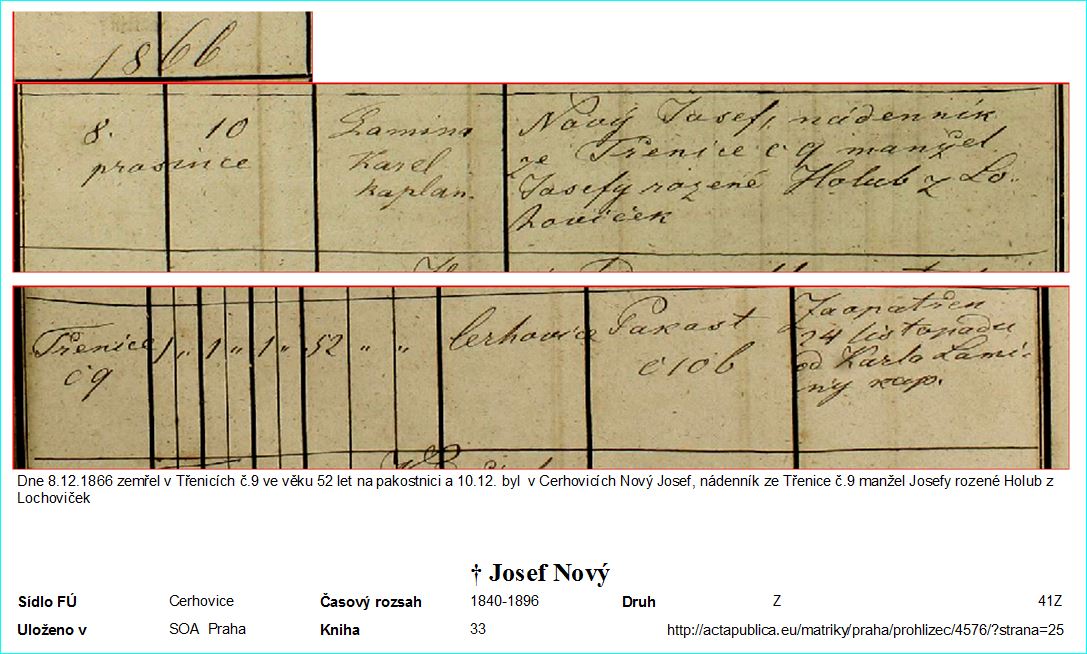 1866
8. 10
prosince
Lamina
Karel
kaplan.
Nový Josef, nádenník
ze Třenice č 9 manžel
Josefy rozené Holub z Lo-
hoviček
Třenice
č 9
1 „ 1 „ 1 „ 52 „ „
Cerhovice
Pakost
č 106
Zaopatřen
24 listopadu
od Karla Lami-
ny kap.
Dne 8.12.1866 zemřel v Třenicích č.9 ve věku 52 let na pakostnici a 10.12. byl v Cerhovicích Nový Josef, nádenník ze Třenice č.9 manžel Josefy rozené Holub z
Lochoviček
† Josef Nový
Sídlo FÚ Cerhovice Časový rozsah 1840-1896 Druh Z 41Z
Uloženo v SOA Praha Kniha 33 http://actapublica.eu/matriky/praha/prohlizec/4576/?strana=25